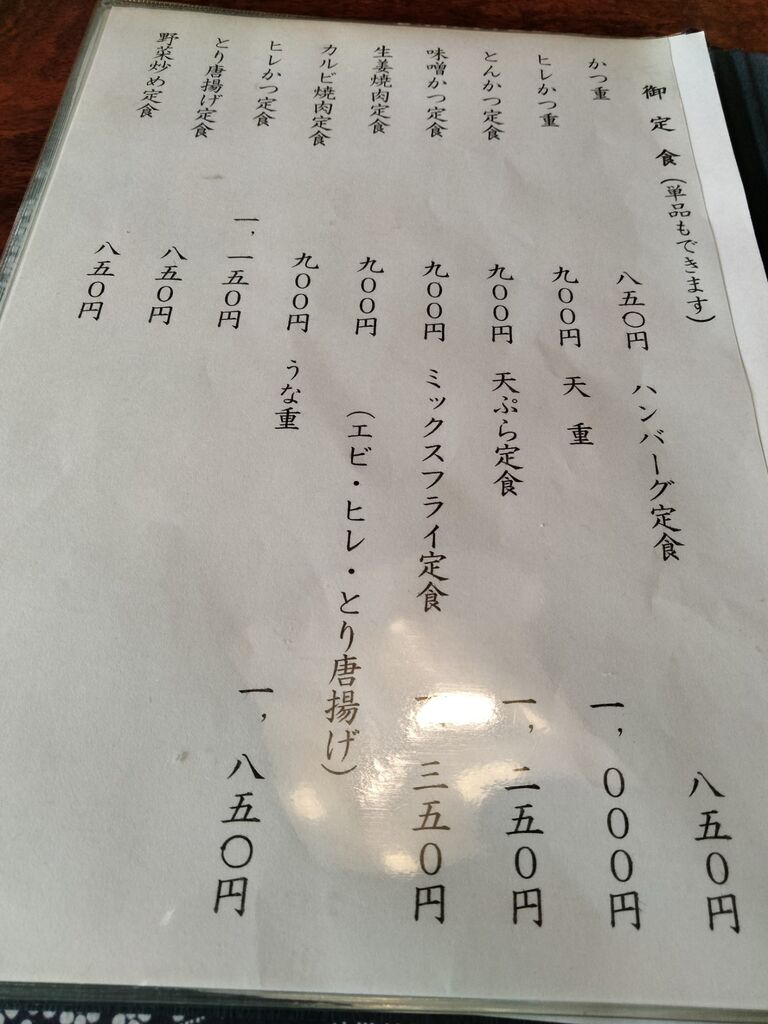 御定食(単品もできます)
かつ重 八五〇円
ヒレかつ重 九〇〇円
とんかつ定食 九〇〇円
味噌かつ定食 九〇〇円
生姜焼肉定食 九〇〇円
カルビ焼肉定食 九〇〇円
ヒレかつ定食 一,一五〇円
とり唐揚げ定食 八五〇円
野菜炒め定食 八五〇円
ハンバーグ定食 八五〇円
天重 一,〇〇〇円
天ぷら定食 一,二五〇円
ミックスフライ定食 一,三五〇円
(エビ・ヒレ・とり唐揚げ)
うな重 一,八五〇円